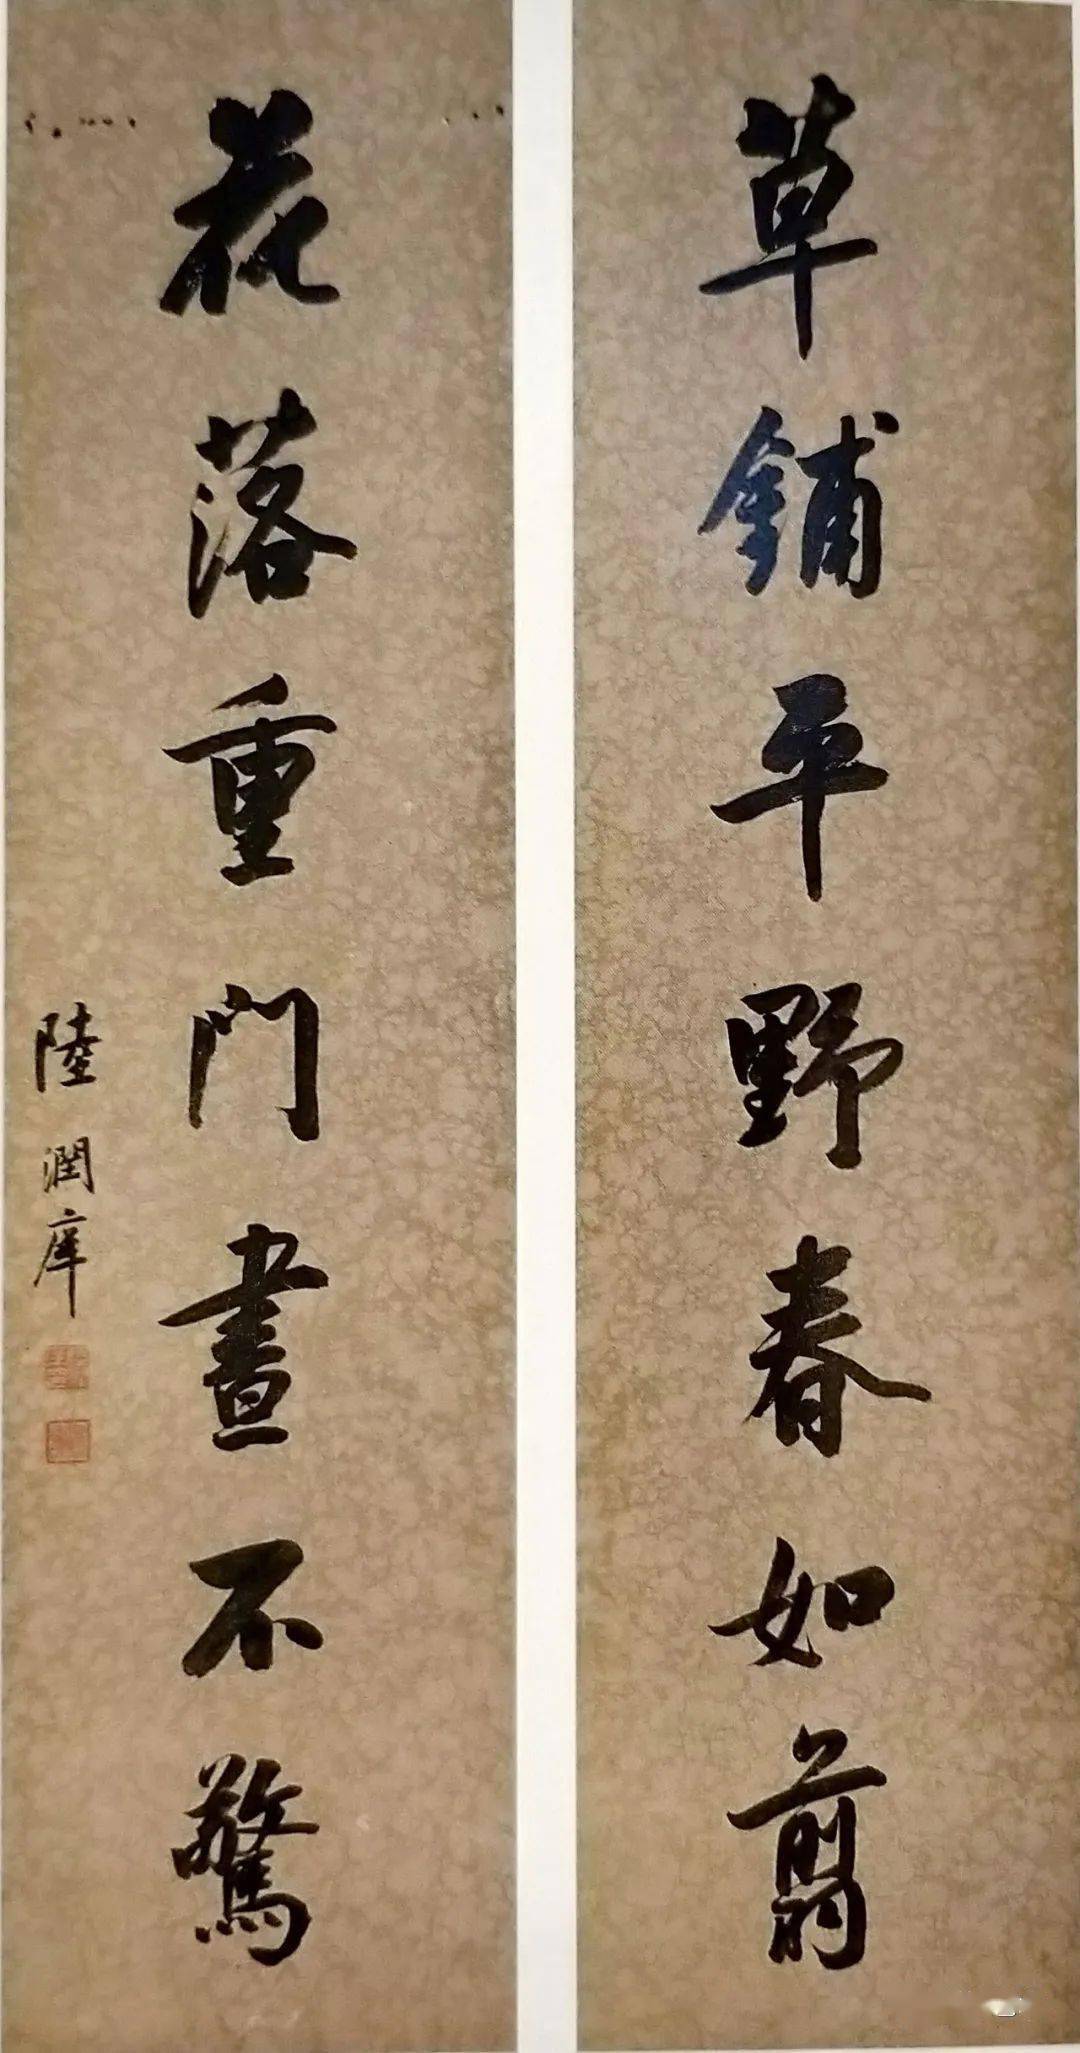 草鋪平野春如翦
花落重門晝不驚
陸潤庠